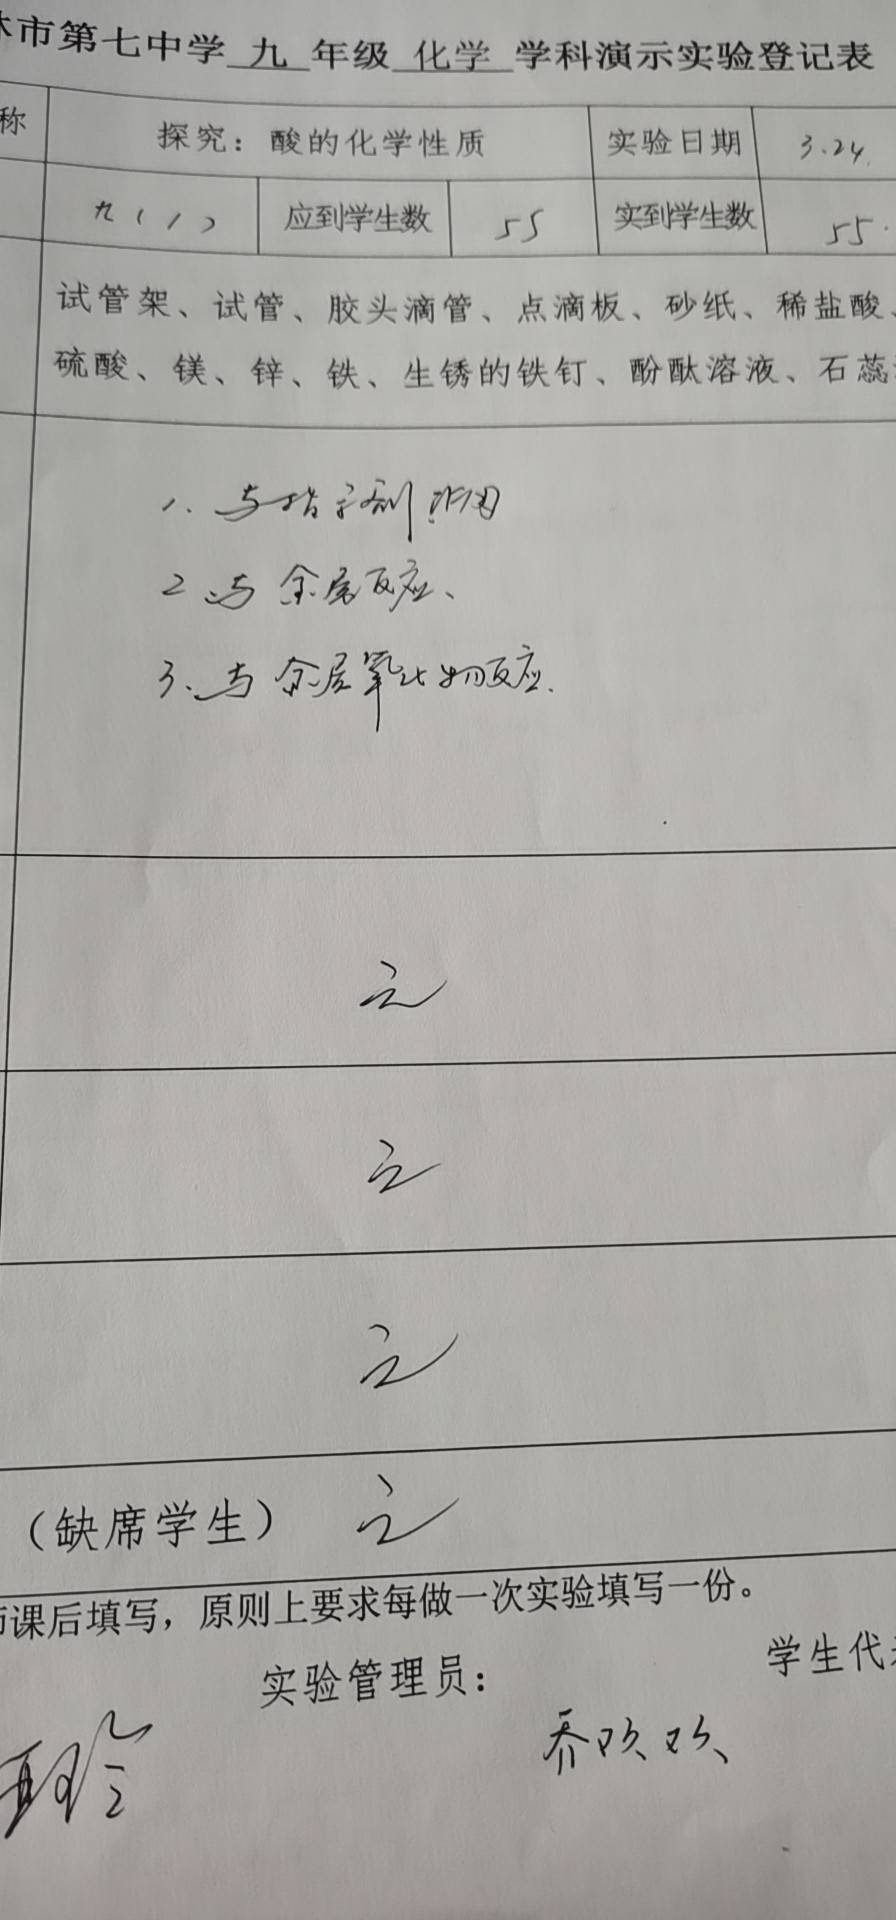 林市第七中学 九 年级 化学 学科演示实验登记表
称 探究：酸的化学性质 实验日期 3.24.
九(1) 应到学生数 55 实到学生数 55.
试管架、试管、胶头滴管、点滴板、砂纸、稀盐酸、
硫酸、镁、锌、铁、生锈的铁钉、酚酞溶液、石蕊
1. 与指示剂作用
2. 与金属反应、
3. 与金属氧化物反应.
无
无
无
（缺席学生） 无
师课后填写，原则上要求每做一次实验填写一份。
实验管理员： 学生代表
乔欢欢